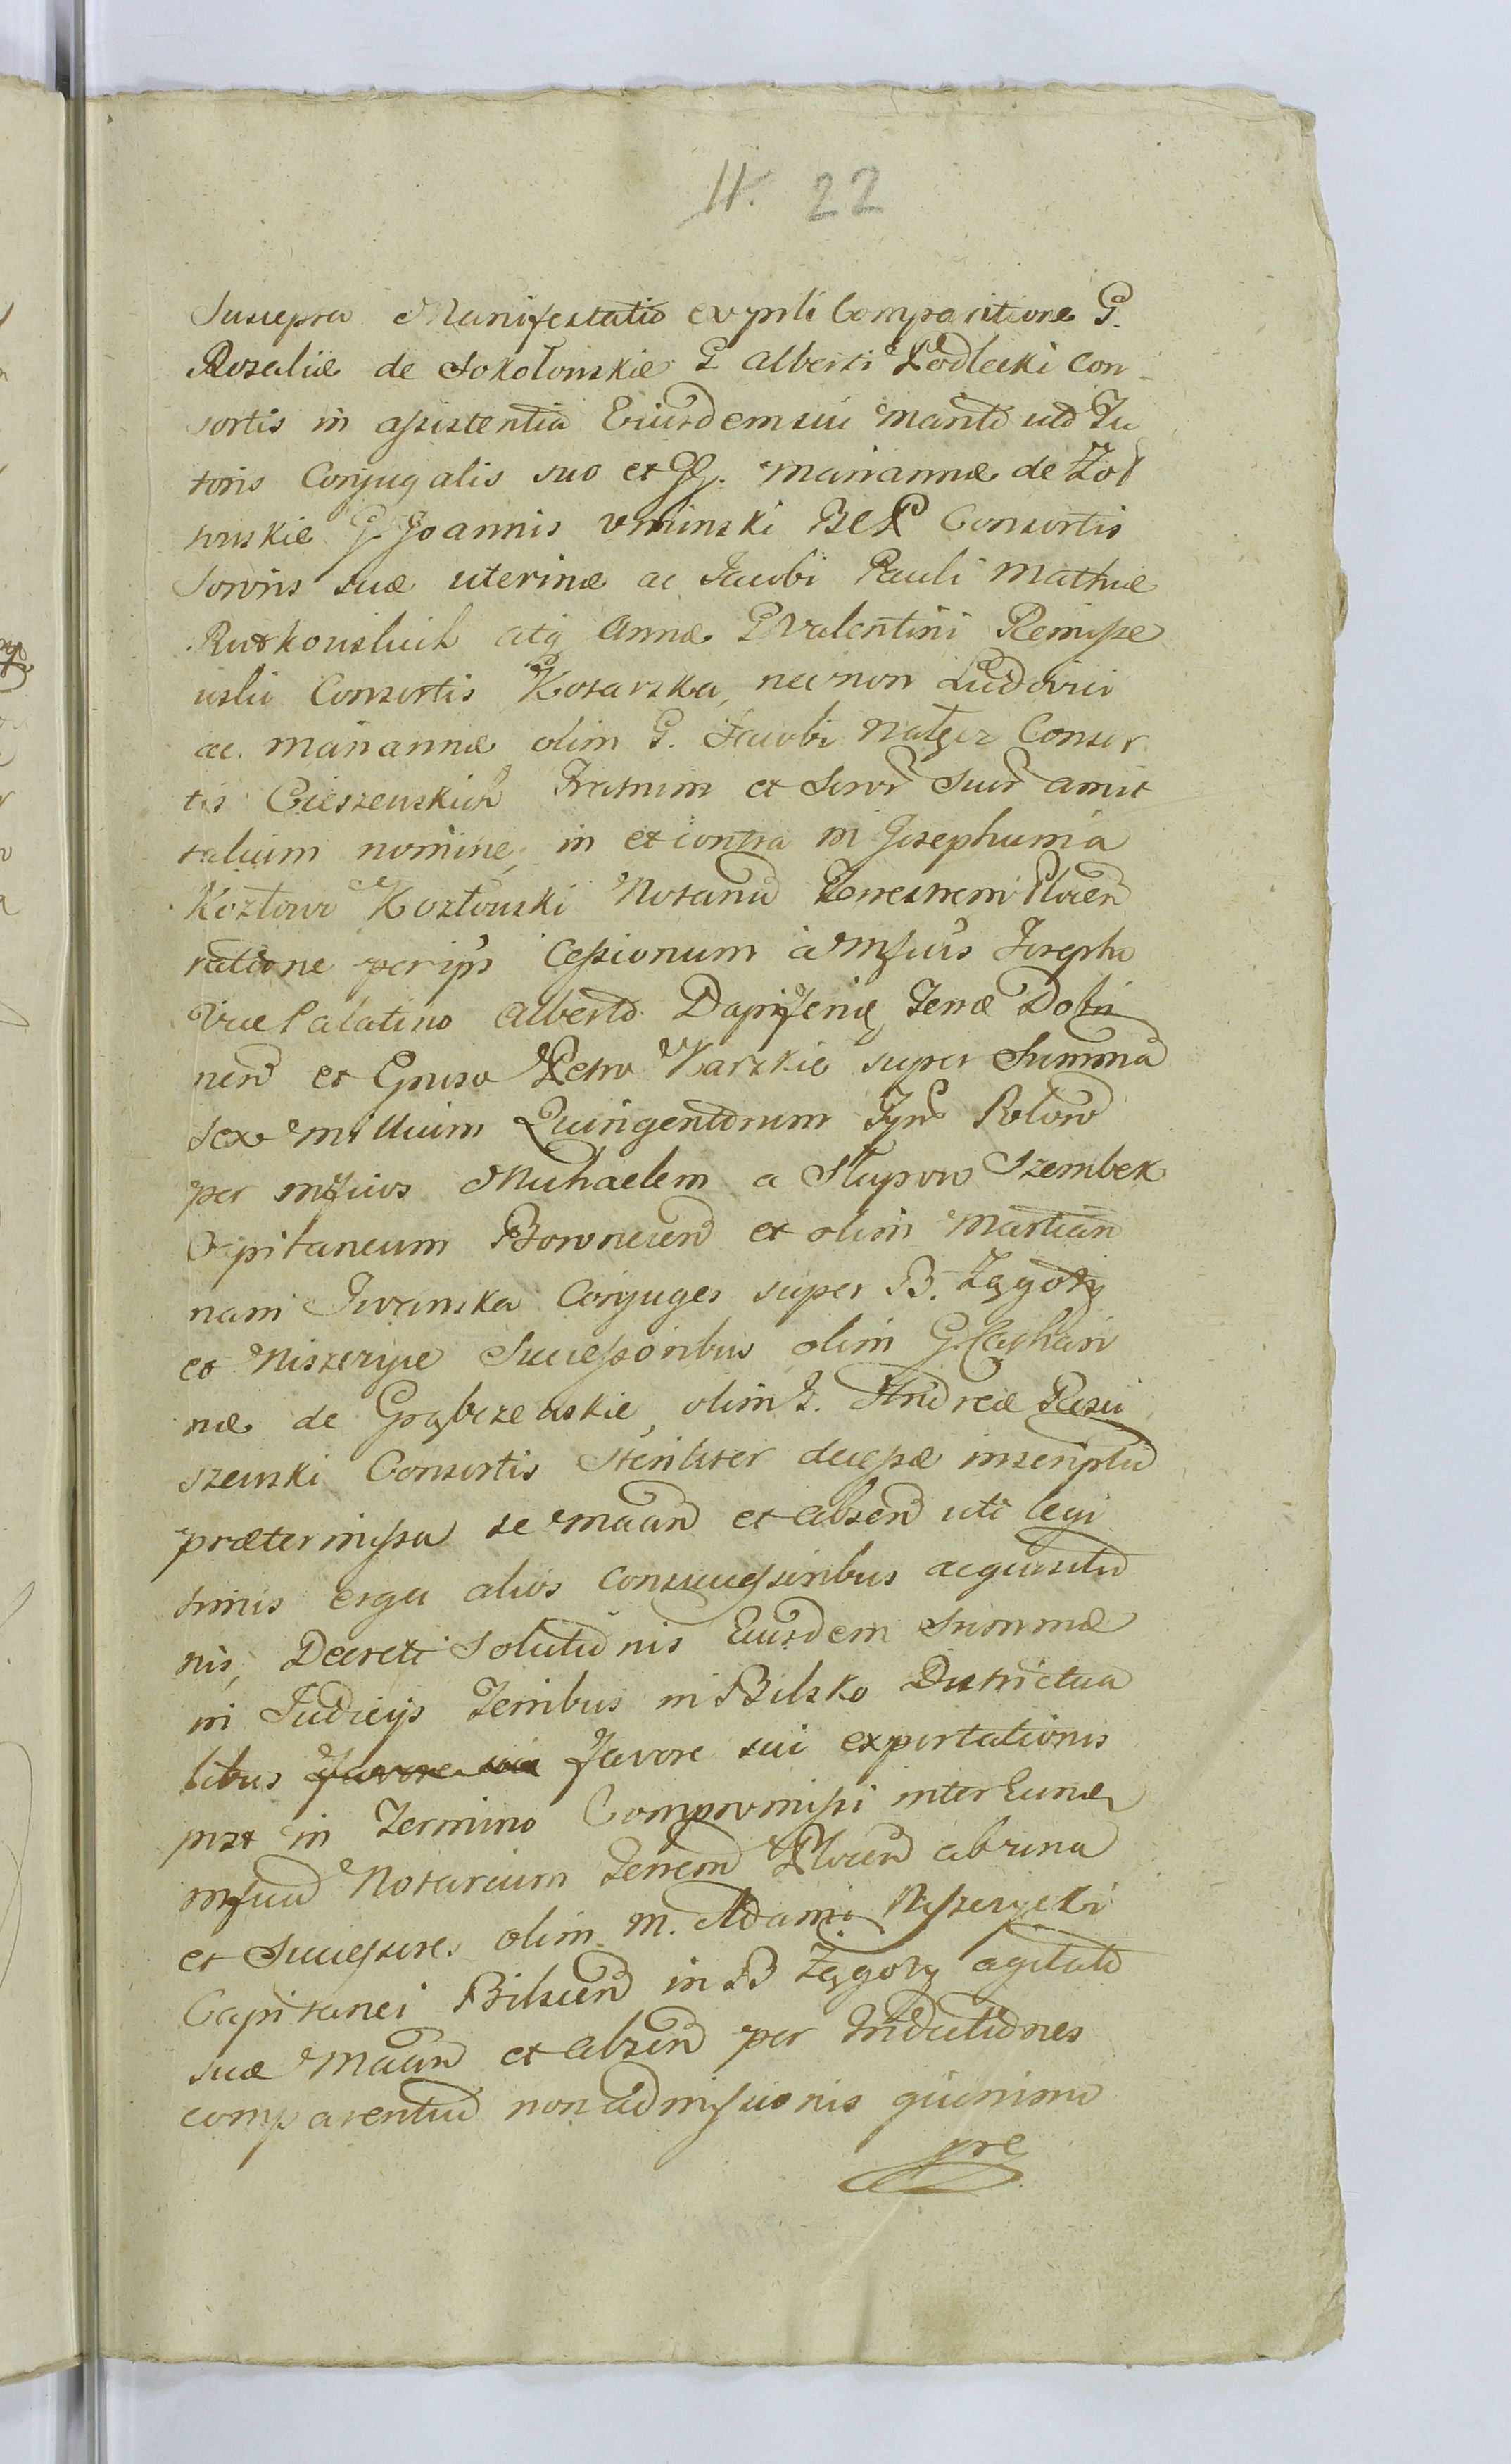 11. 22
Suscepta Manifestatio ex prsli Comparitione G.
Rosaliæ de Sokołowskie G Alberti Podlecki Con-
sortis in assistentia Eiusdem sui Mariti uti Tu
toris Conjugalis suo et GG. Mariannæ de Żoł
towskie G Joannis Uminski BCP Consortis
Sororis suæ uterinæ ac Jacobi Pauli Mathiæ
Rutkowskich atq Annæ G Valentini Rempe
Consortis Kosarska, necnon Ludovici
ac Mariannæ olim G. Jacobi Nałęcz Consor
tis Cieszewskich Fratrum et Soror Suor amit
talium nomine, in et contra M Josephum a
Kozłowo Kozłowski Notariu Terrestrem Plocen
ratione per ips Cessionum a Mfcis Josepho
Vice Palatino Alberto Dapifero Terræ Dobri
nen et Gnroso Petro Karskie super Summa
sex Millium Quingentorum Flnor Polon
per Mfcos Michaelem a Słupow Szembek
Capitaneum Bowneien et olim Martian
nam Iwanska Conjuges super B. Zągoty
et Niszczyce Successoribus olim G. Catharin
næ de Grąbczewskie, olim G. Andreæ Rosci
szewski Consortis Steriliter decessæ inscriptu
prætermissa se Maan et absen uti legi
timis erga alios Consuccessoribus acquisitio
nis, Decreti Solutionis Eiusdem Summæ
in Judicijs Terribus in Bilsko Districtua
libus favore sui favore sui exportationis
prst in Termino Compromissi inter Eunde
Mfcum Notarium Terrem Plocen ab una
et Successores olim M. Adami Niszczycki
Capitanei Bilscen in B Zągoty agitati
suæ Maan et absen per Inductiones
comparentiu non admissionis quinimo
pre